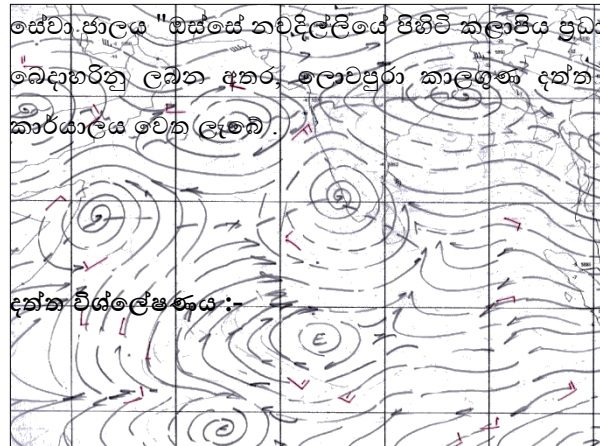 සේවා ජාලය "ඔස්සේ නවදිල්ලියේ පිහිටි කලාපීය ප්‍රධා
බෙදාහරිනු ලබන අතර, ලොවපුරා කාලගුණ දත්ත
කාර්යාලය වෙත ලැබේ .
දත්ත විශ්ලේෂණය :-